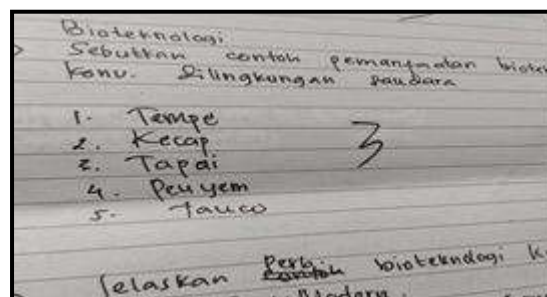 Bioteknologi
Sebutkan contoh pemanfaatan biotek
Konv. Dilingkungan saudara
1. Tempe
2. Kecap
3. Tapai
4. Peuyem
5. Tauco
3
Jelaskan Perb. contoh bioteknologi K
Modern.